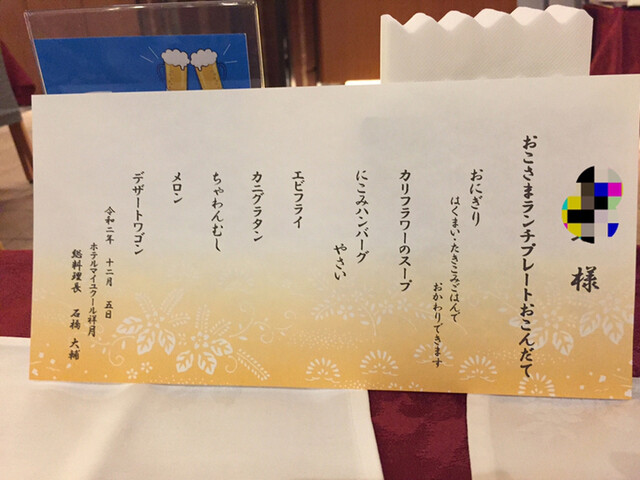 様
おこさまランチプレートおこんだて
おにぎり
はくまい・たきこみごはんで
おかわりできます
カリフラワーのスープ
にこみハンバーグ
やさい
エビフライ
カニグラタン
ちゃわんむし
メロン
デザートワゴン
令和二年 十二月 五日
ホテルマイユクール祥月
総料理長 石橋 大輔